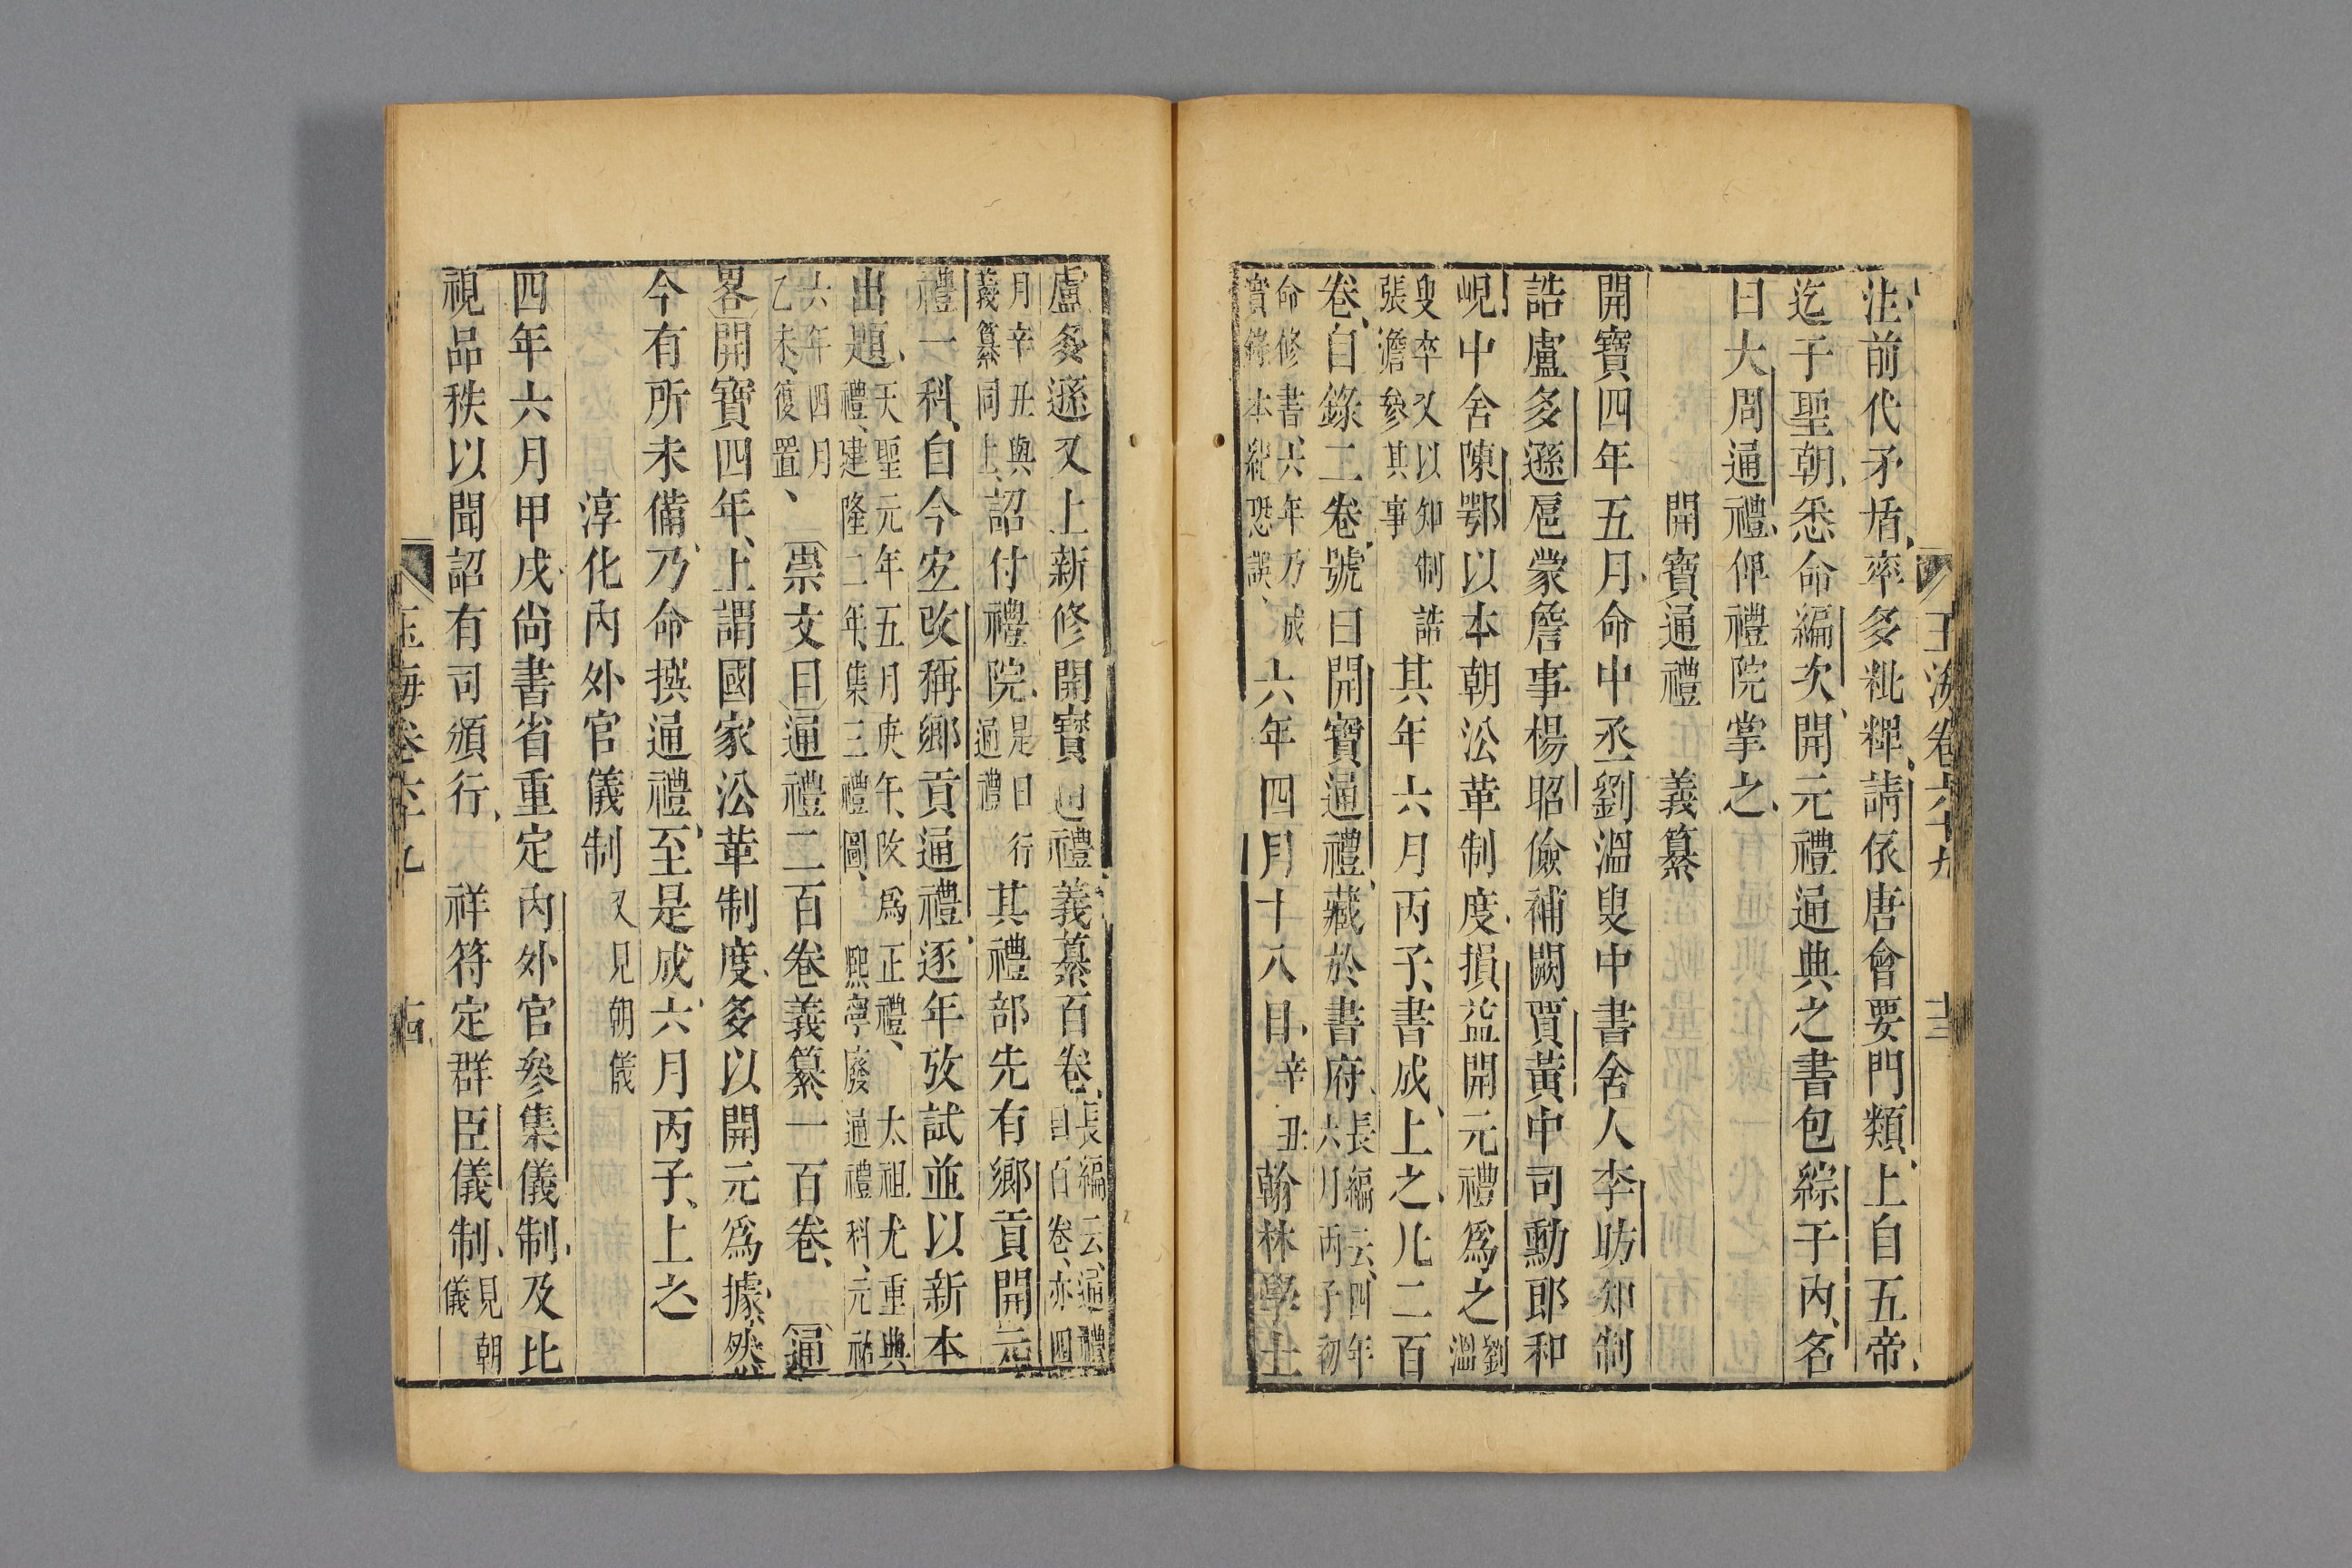 玉海卷六十九 十三
注前代矛盾率多粃粺請依唐會要門類上自五帝
迄于聖朝悉命編次開元禮通典之書包綜于內名
曰大周通禮俾禮院掌之
開寶通禮 義纂
開寶四年五月命中丞劉溫叟中書舍人李昉知制
誥盧多遜扈蒙詹事楊昭儉補闕賈黃中司勳郎和
峴中舍陳鄂以本朝沿革制度損益開元禮爲之劉溫
叟卒又以知制誥張澹參其事其年六月丙子書成上之凡二百
卷自錄二卷號曰開寶通禮藏於書府長編云四年六月丙子初
命修書六年乃成實錄本紀恐誤六年四月十八日辛丑翰林學士
盧多遜又上新修開寶通禮義纂百卷長編云通禮目百卷亦四
月辛丑與義纂同上詔付禮院是日行通禮其禮部先有鄉貢開元
禮一科自今宜改稱鄉貢通禮逐年攷試並以新本
出題天聖元年五月庚午改爲正禮太祖尤重典禮建隆二年集三禮圖熙寧廢通禮科元祐
六年四月乙未復置崇文目通禮二百卷義纂一百卷通
畧開寶四年上謂國家沿革制度多以開元爲據然
今有所未備乃命撰通禮至是成六月丙子上之
淳化內外官儀制又見朝儀
四年六月甲戌尚書省重定內外官參集儀制及比
視品秩以聞詔有司頒行祥符定群臣儀制見朝儀
玉海卷六十九 十四